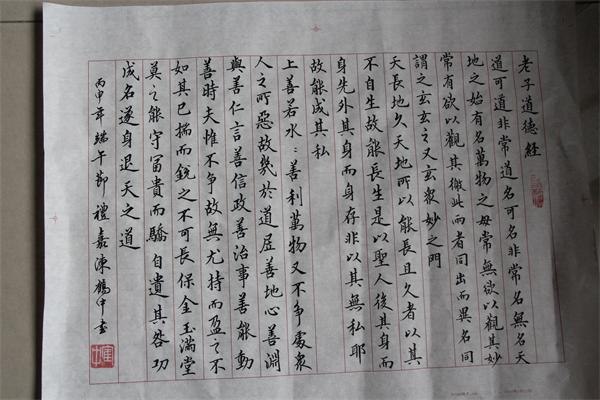 老子道德經
道可道非常道名可名非常名無名天
地之始有名萬物之母常無欲以觀其妙
常有欲以觀其徼此兩者同出而異名同
謂之玄玄之又玄衆妙之門
天長地久天地所以能長且久者以其
不自生故能長生是以聖人後其身而
身先外其身而身存非以其無私耶
故能成其私
上善若水〻善利萬物又不争處衆
人之所惡故幾於道居善地心善淵
與善仁言善信政善治事善能動
善時夫惟不争故無尤持而盈之不
如其已揣而銳之不可長保金玉滿堂
莫之能守冨貴而驕自遺其咎功
成名遂身退天之道
丙申年端午節禮嘉陳鶴中書